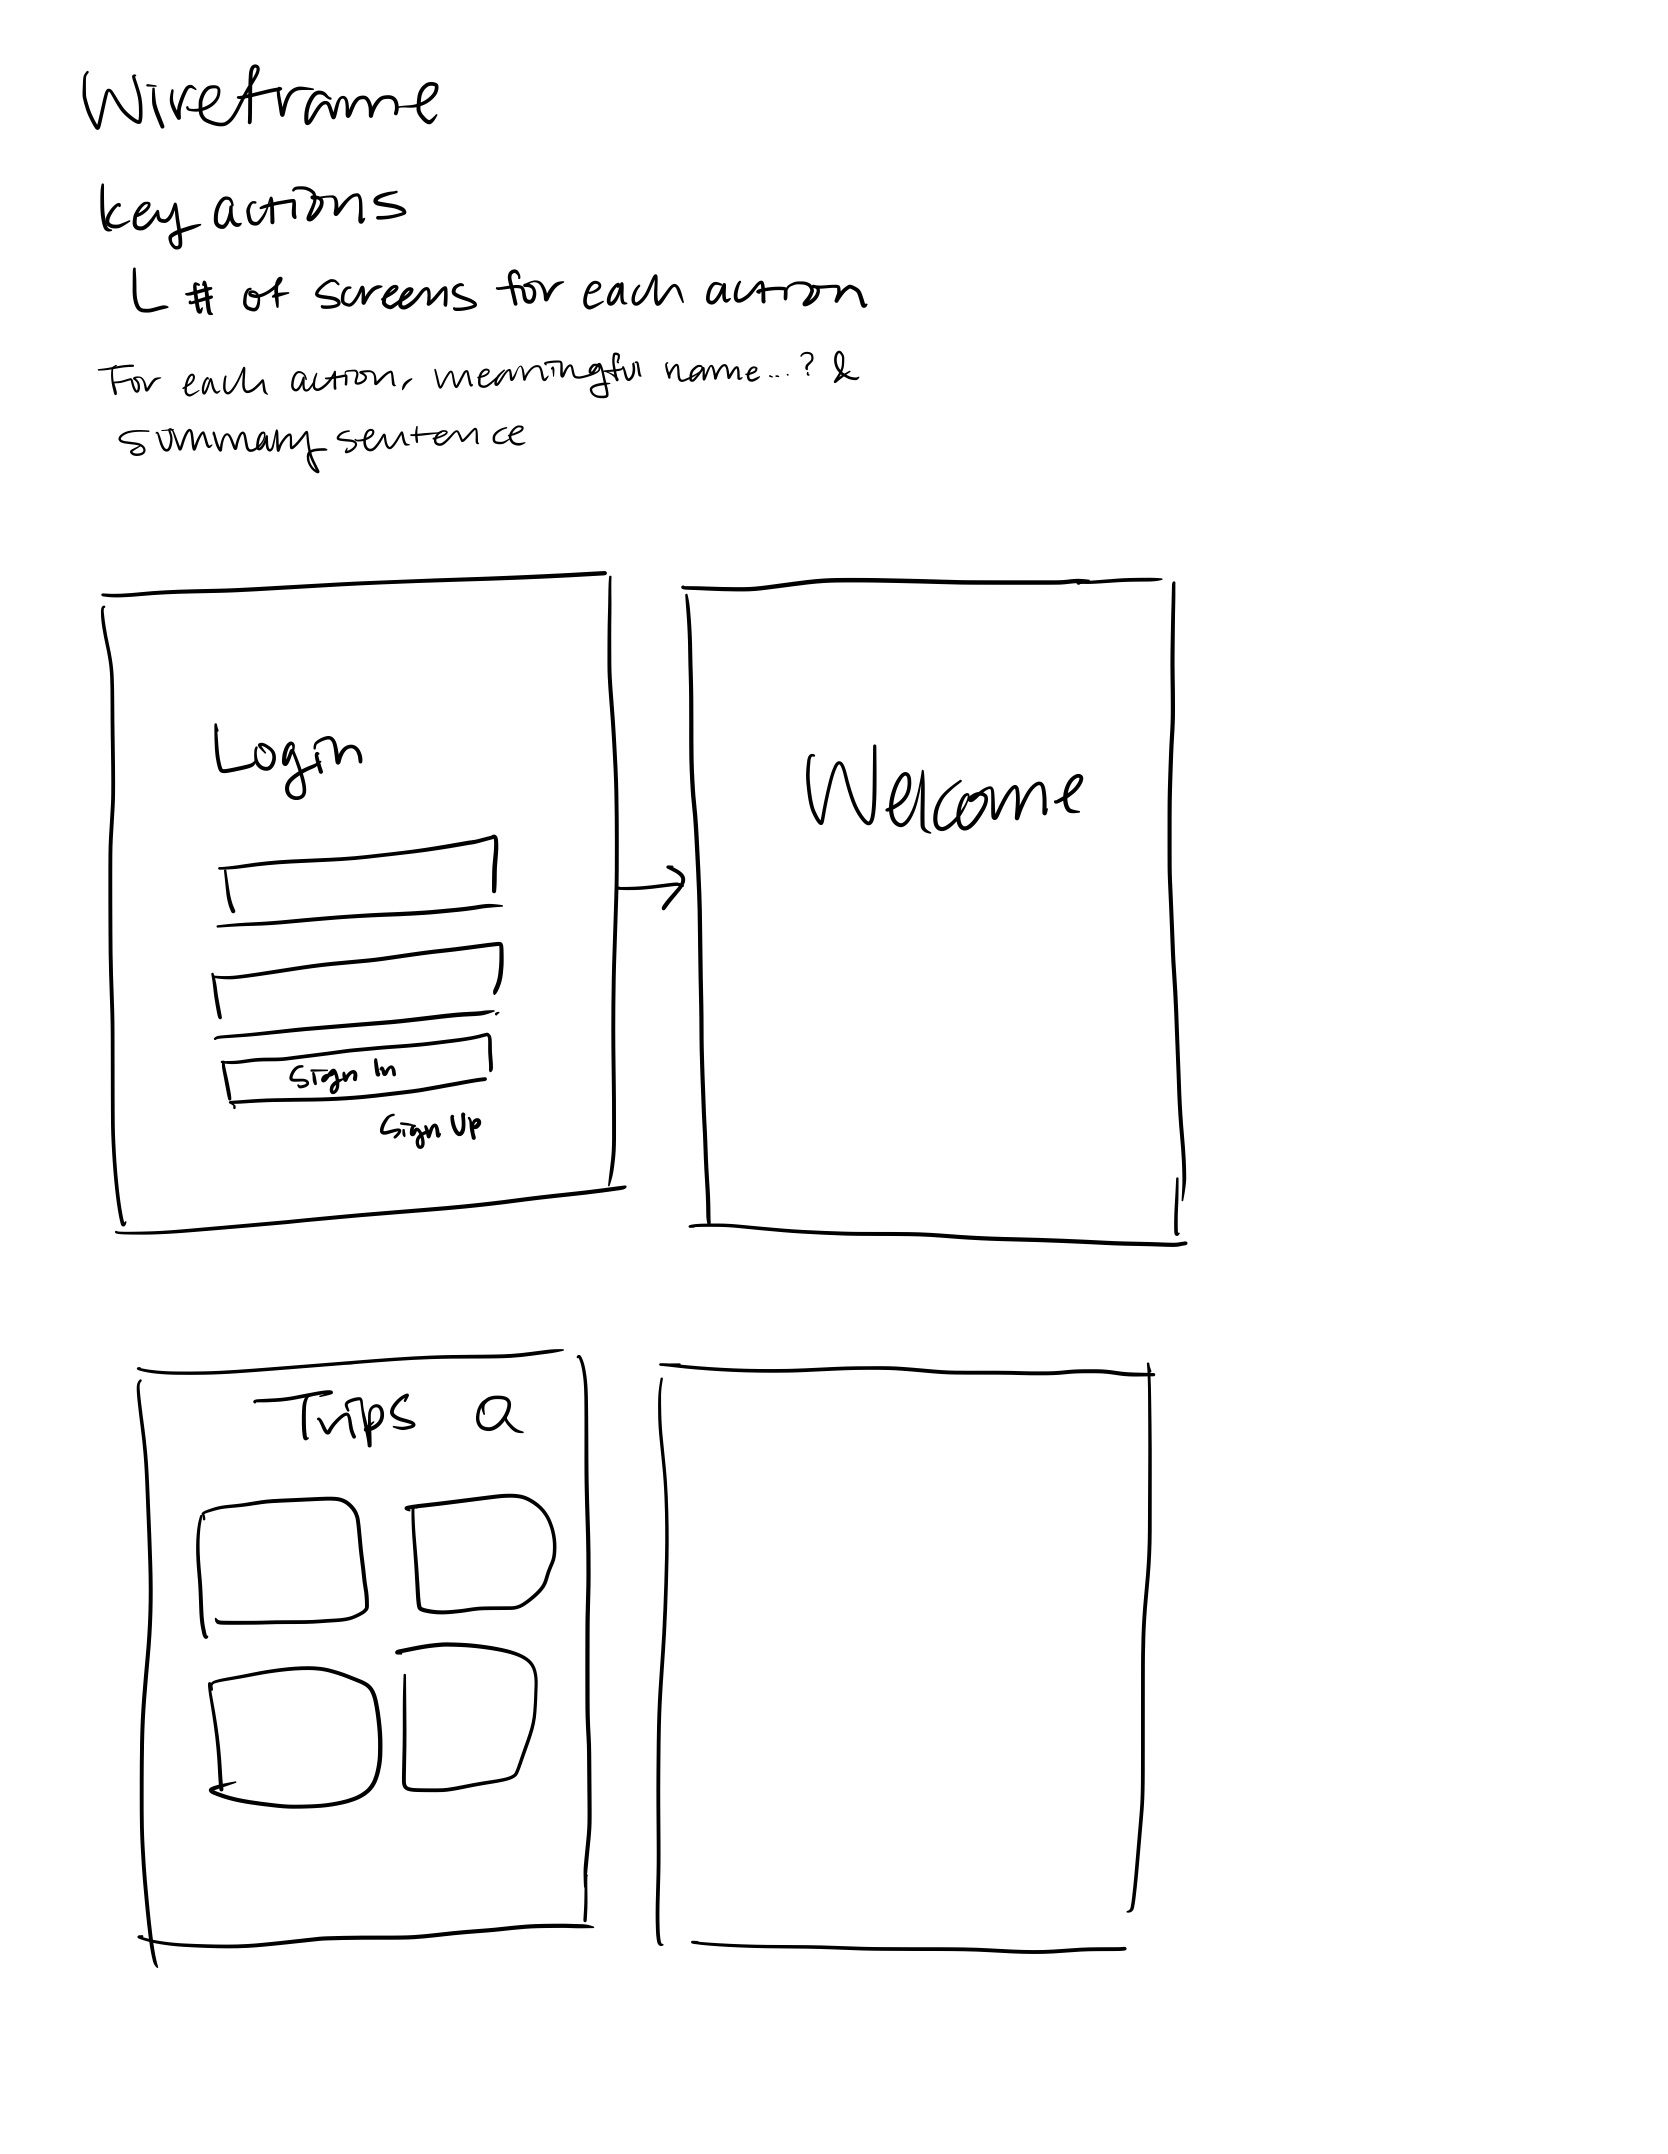 Wireframe
key actions
L # of screens for each action
For each action, meaningful name...? &
summary sentence
Login
Welcome
Sign In
Sign Up
Trips a